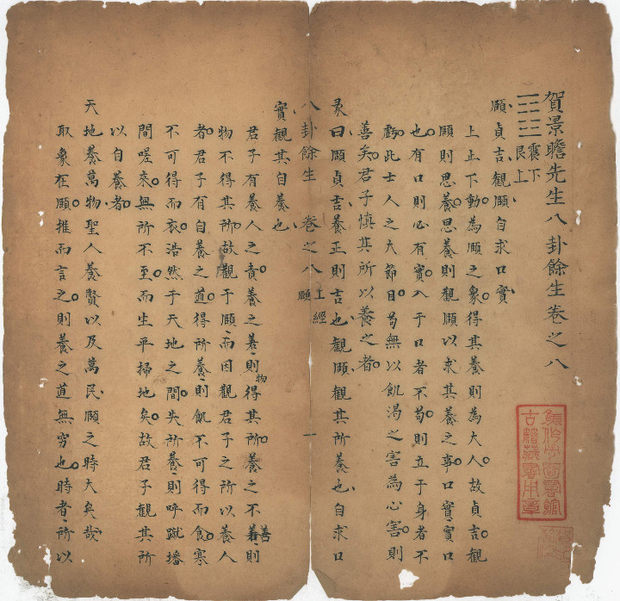 賀景瞻先生八卦餘生卷之八
震下
艮上
頤貞吉觀頤自求口實
上止下動為頤之象得其養則為大人故貞吉觀
頤則思養思養則觀頤以求其養之事口實實口
也有口則必有實入于口者不苟則立于身者不
虧此士人之大節目曷無以飢渴之害為心害則
善矣君子慎其所以養之者
彖曰頤貞吉養正則吉也觀頤觀其所養也自求口
八卦餘生 卷之八頤 上經 一
實觀其自養也
君子有養人之責養之則物得其所養之不善則
物不得其所故觀于頤而因觀君子之所以養人
者君子有自養之道得所養則飢不可得而食寒
不可得而衣浩然于天地之間失所養則呼蹴墦
間嗟來無所不至而生平掃地矣故君子觀其所
以自養者
天地養萬物聖人養賢以及萬民頤之時大矣哉
取象在頤推而言之則養之道無窮也時者所以
古籍藏書用章